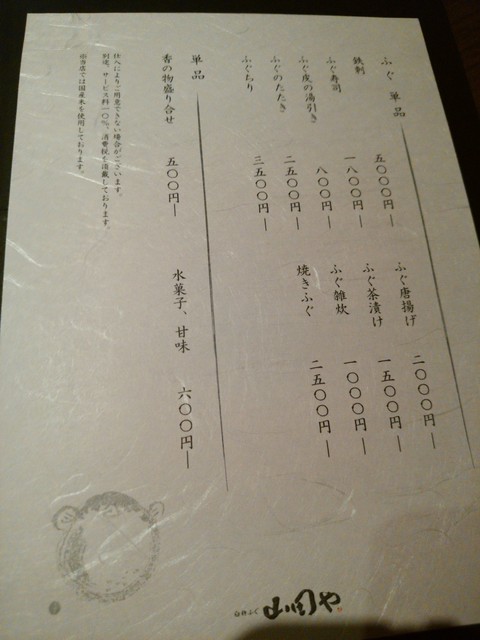 ふぐ 単品
鉄刺 五〇〇〇円―
ふぐ寿司 一八〇〇円―
ふぐ皮の湯引き 八〇〇円―
ふぐのたたき 二五〇〇円―
ふぐちり 三五〇〇円―
ふぐ唐揚げ 二〇〇〇円―
ふぐ茶漬け 一五〇〇円―
ふぐ雑炊 一〇〇〇円―
焼きふぐ 二五〇〇円―
単品
香の物盛り合せ 五〇〇円―
水菓子、甘味 六〇〇円―
仕入によりご用意できない場合がございます。
別途、サービス料一〇％、消費税を頂戴しております。
※当店では国産米を使用しております。